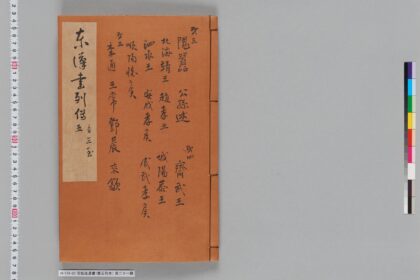 東漢書列傳 五
傳三
隗囂 公孫述
傳四
齊武王
北海靖王 趙孝王 城陽恭王
泗水王 安成孝侯 成武孝侯
順陽懷侯
傳五
李通 王常 鄧晨 來歙